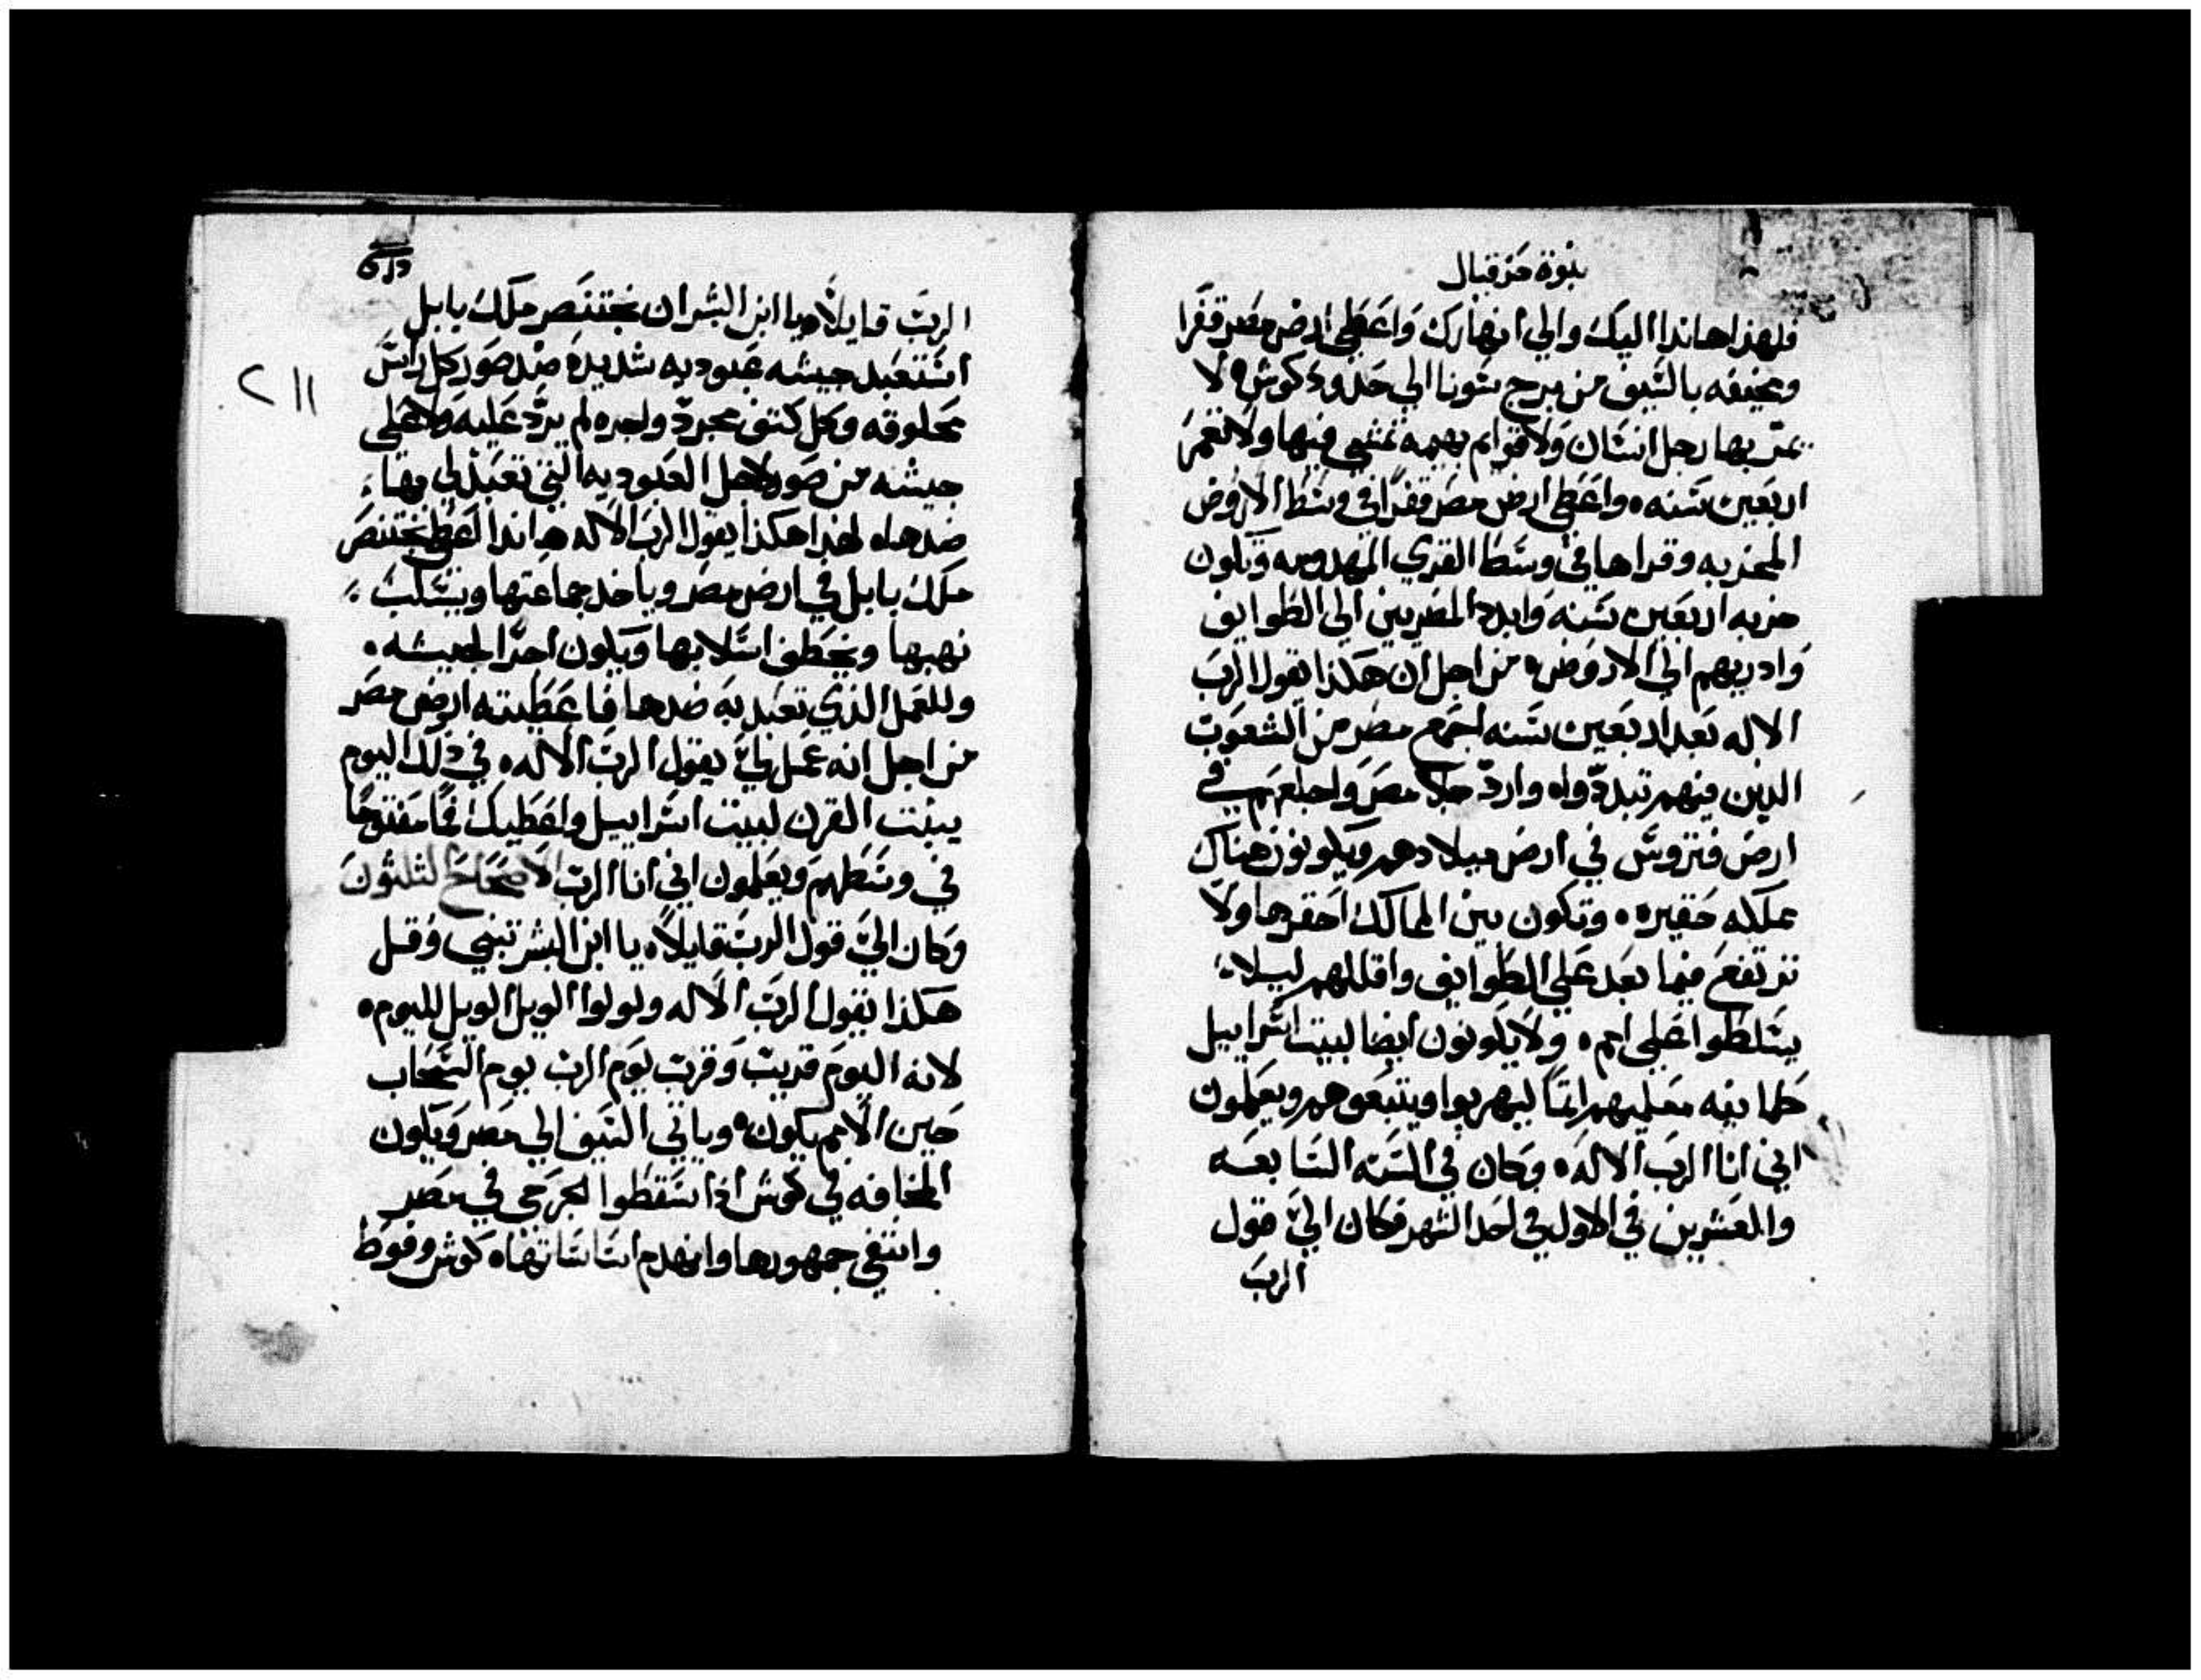 نبوة حزقيال
فلهذا هانذا اليك والي انهارك واعطي ارض مصر قفرا
ومخيفه بالسيف من برج سونا الي حدود كوش ه لا
يمر بها رجل انسان ولا قوايم بهيمه تمشي فيها ولا تعمر
اربعين سنه ه واعطي ارض مصر قفرا في وسط الاروض
المخربه وقراها في وسط القري المهدومه وتكون
خربه اربعين سنه وابدد المصريين الي الطوايف
وادريهم الي الاروض ه من اجل ان هكذا يقول الرب
الاله بعد اربعين سنه اجمع مصر من الشعوب
الدين فيهم تبددوا ه وارد جلا مصر واجلعهم في
ارض فتروس في ارض ميلادهم ويكونون هناك
مملكه حقيره ه وتكون بين الممالك احقرها ولا
ترتفع فيما بعد علي الطوايف واقللهم ليلا
يتسلطوا علي امم ه ولا يكونون ايضا لبيت اسراييل
طمانينه معلمهم اتما ليهربوا ويتبعوهم ويعلمون
اني انا الرب الاله ه وكان في السنه السابعه
والعشرين في الاول في احد الشهر فكان الي قول
الرب
الرب قايلا ه يا ابن البشر ان بختنصر ملك بابل
استعبد جيشه عبوديه شديده ضد صور كل راس
محلوقه وكل كتف مجرد ولجره لم يرد عليه ولا علي
جيشه من صور لاجل العبوديه التي تعبد لي بها
ضدها ه لهذا هكذا يقول الرب الاله هانذا اعطي بختنصر
ملك بابل في ارض مصر وياخد جماعتها ويسلب
نهبها ويخطف اسلابها ويكون اجرا لجيشه ه
وللعمل الذي تعبد به ضدها فاعطيته ارض مصر
من اجل انه عمل لي يقول الرب الاله ه في ذلك اليوم
ينبت القرن لبيت اسراييل واعطيك فما مفتوحا
في وسطهم ويعلمون اني انا الرب الاصحاح الثلثون
وكان الي قول الرب قايلا ه يا ابن البشر تنبي وقل
هكذا يقول الرب الاله ولولوا الويل الويل لليوم ه
لانه اليوم قريب وقرب يوم الرب يوم السحاب
حين الامم يكون ه وياتي السيف الي مصر ويكون
المخافه في كوش اذا سقطوا الجرحي في مصر
وانتفي جمهورها وانهدم اساساتها ه كوش وفوط
٢١١